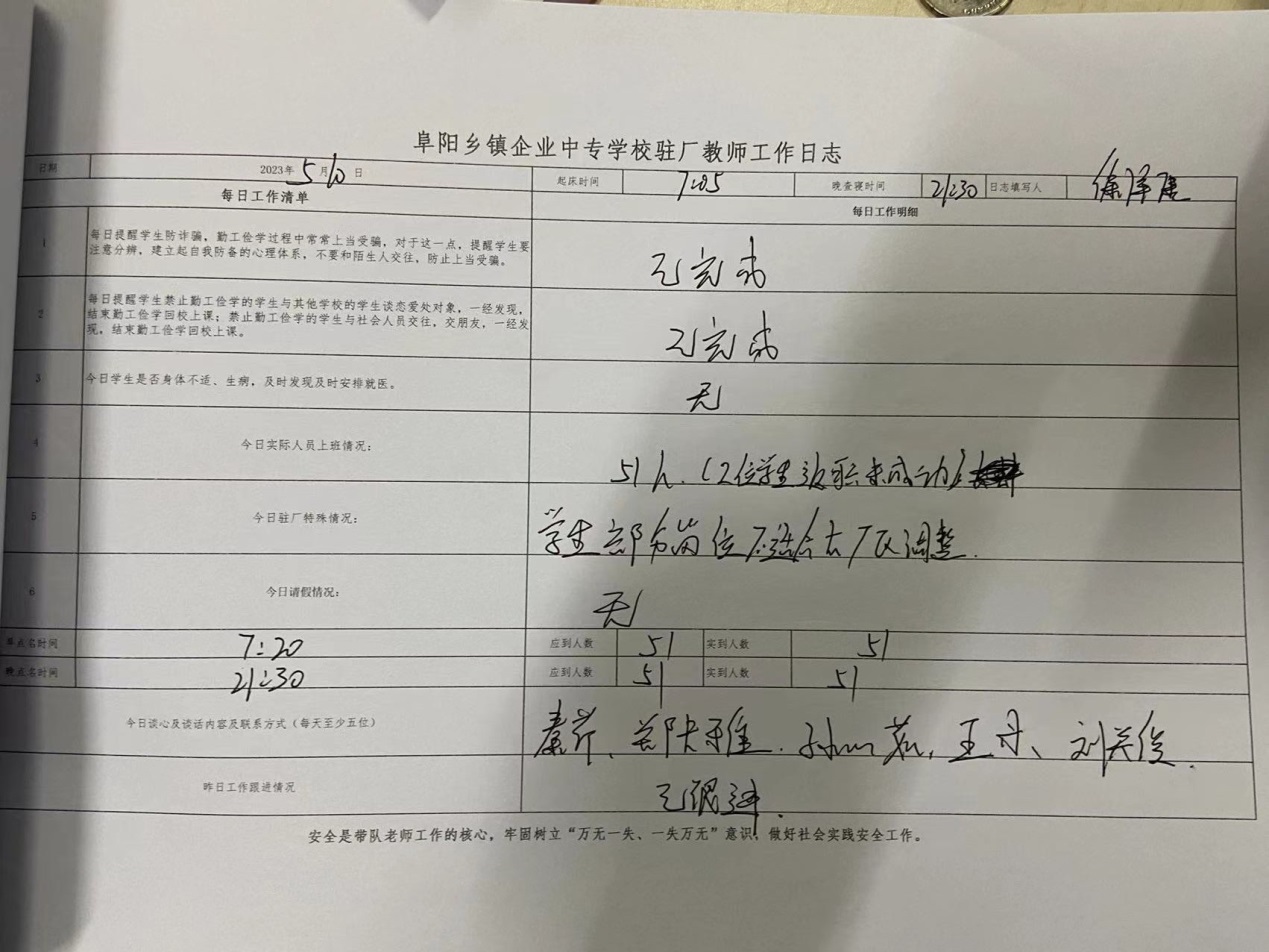 阜阳乡镇企业中专学校驻厂教师工作日志
日期 2023年5月10日 起床时间 7:05 晚查寝时间 21:30 日志填写人 徐泽
每日工作清单 每日工作明细
1 每日提醒学生防诈骗，勤工俭学过程中常常上当受骗，对于这一点，提醒学生要
注意分辨，建立起自我防备的心理体系，不要和陌生人交往，防止上当受骗。
已完成
2 每日提醒学生禁止勤工俭学的学生与其他学校的学生谈恋爱处对象，一经发现，
结束勤工俭学回校上课；禁止勤工俭学的学生与社会人员交往，交朋友，一经发
现，结束勤工俭学回校上课。
已完成
3 今日学生是否身体不适、生病，及时发现及时安排就医。 无
4 今日实际人员上班情况： 51人.（2位学生返职未成功）
5 今日驻厂特殊情况： 学生部分岗位不适合去厂区调整.
6 今日请假情况： 无
早点名时间 7:20 应到人数 51 实到人数 51
晚点名时间 21:30 应到人数 51 实到人数 51
今日谈心及谈话内容及联系方式（每天至少五位） 秦芹、孙茹，王丹、刘关俊.
昨日工作跟进情况 已跟进.
安全是带队老师工作的核心，牢固树立“万无一失、一失万无”意识，做好社会实践安全工作。